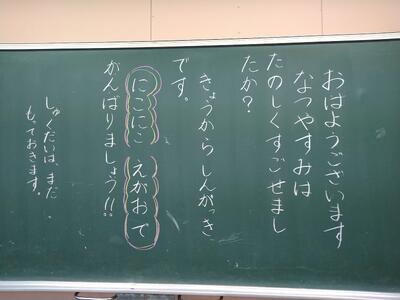 おはようございます
なつやすみは
たのしくすごせまし
たか?
きょうからしんがっき
です。
にこにこ えがおで
がんばりましょう!!
しゅくだいは、まだ
もっておきます。